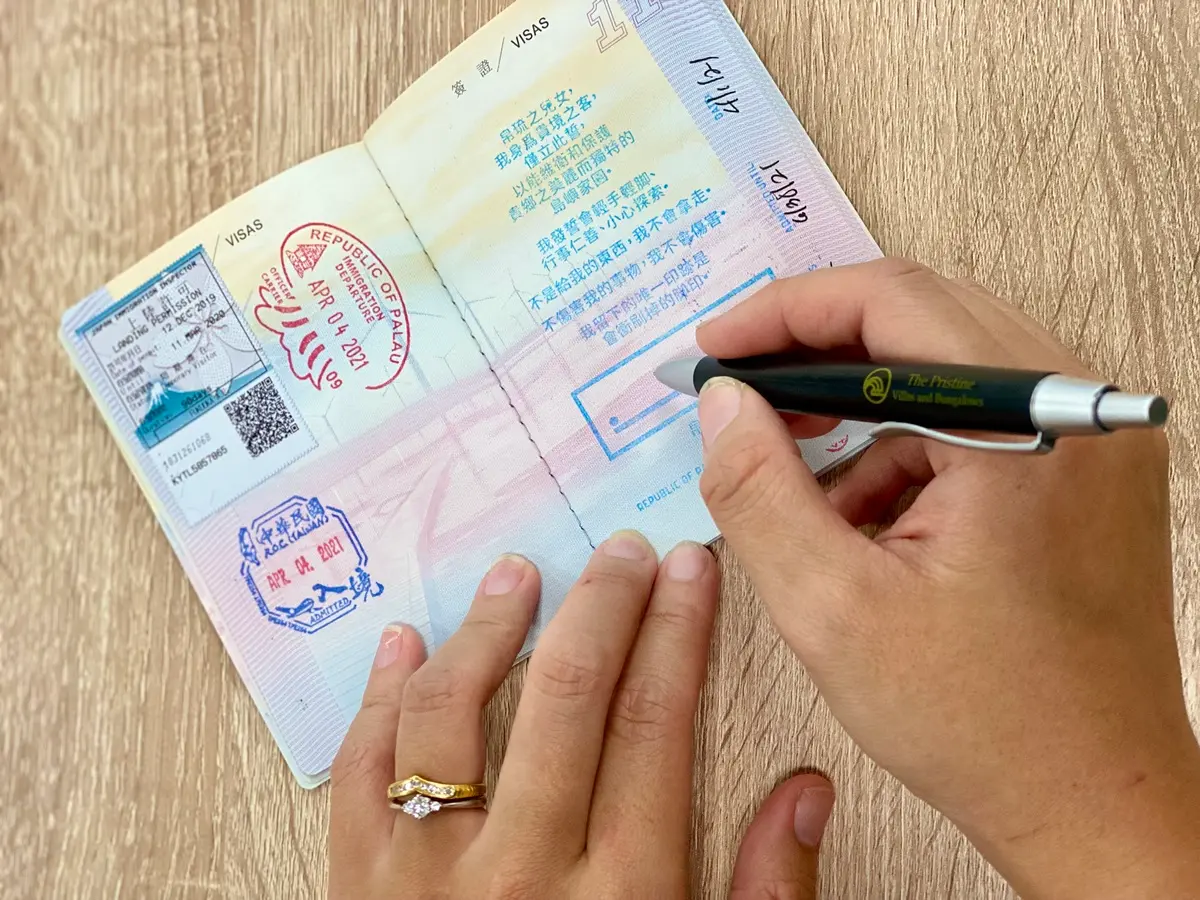 VISAS
JAPAN IMMIGRATION INSPECTOR
上陸許可
LANDING PERMISSION
12.DEC.2019
11.MAR.2020
1031261068
KYTL5857865
REPUBLIC OF PALAU
IMMIGRATION
DEPARTURE
APR 04 2021
09
OFFICER
CARRIER
中華民國
R.O.C.(TAIWAN)
APR. 04. 2021
ADMITTED
境
簽證/VISAS
11
帛琉之兒女,
我身爲貴境之客,
僅立此誓,
以能維衛和保護
貴鄉之美麗而獨特的
島嶼家園。
我發誓會輕手輕腳、
行事仁善、小心探索。
不是給我的東西,我不會拿走。
不傷害我的事物,我不會傷害。
我留下的唯一印跡是
會衝刷掉的腳印。
REPUBLIC OF
4/1/21
ADMITTED UNTIL
6/30/21
The Pristine
Villas and Bungalows